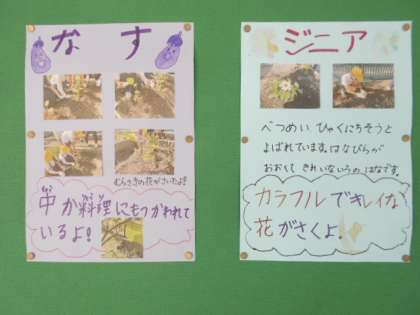 なす
むらさきの花がさいたよ!
中か料理にもつかわれて
いるよ!
ジニア
べつめい ひゃくにちそうと
よばれています。はなびらが
おおくて きれいないろの はなです。
カラフルでキレイな
花がさくよ!